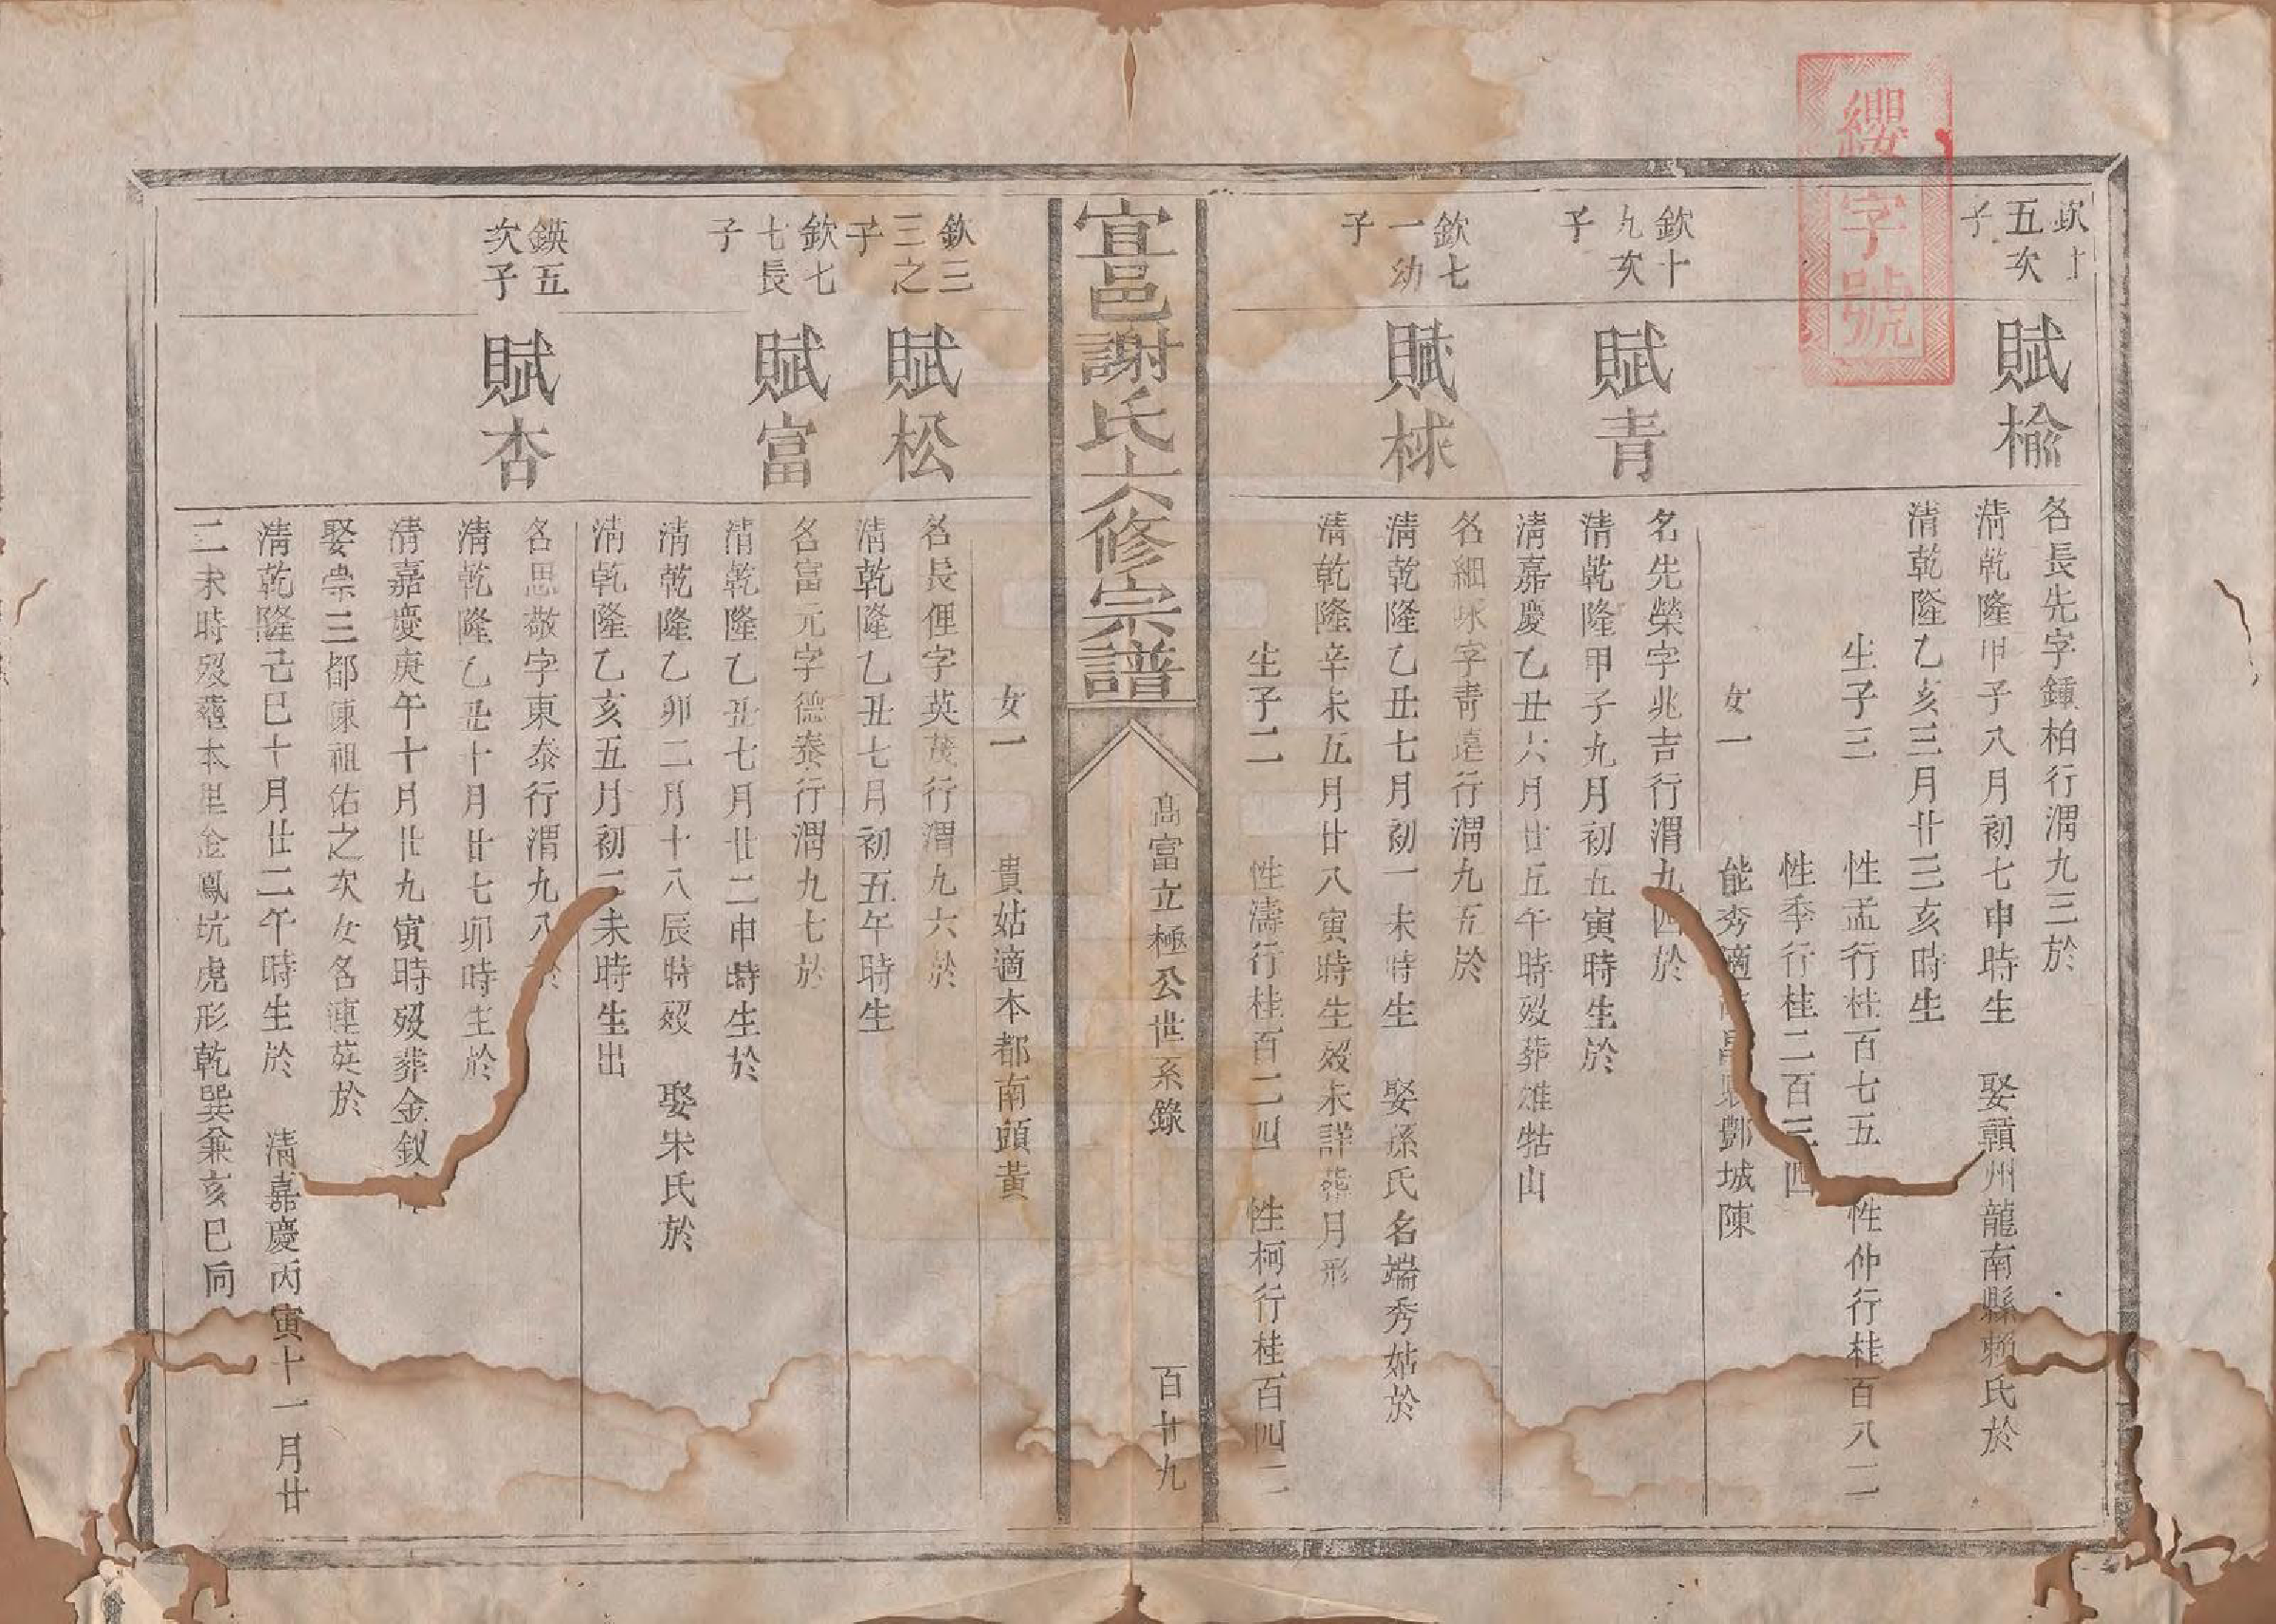 纓字號
欽十
五次
子
賦榆
名長先字鍾柏行渭九三於
清乾隆甲子八月初七申時生 娶贛州龍南縣賴氏於
清乾隆乙亥三月廿三亥時生
生子三 性孟行桂百七五 性仲行桂百八一
性季行桂二百三四
女一 能秀適 鄧城陳
欽十
九次
子
賦青
名先榮字兆吉行渭九四於
清乾隆甲子九月初五寅時生於
清嘉慶乙丑六月廿五午時歿葬雄牯山
欽七
一幼
子
賦梂
名細球字青遠行渭九五於
清乾隆乙丑七月初一未時生 娶孫氏名端秀姑於
清乾隆辛未五月廿八寅時生歿未詳葬月形
生子二 性濤行桂百二四 性柯行桂百四二
宜邑謝氏六修宗譜
高富立極公世系錄
百廿九
女一 貴姑適本都南頭黃
欽三
三之
子
賦松
名長俚字英茂行渭九六於
清乾隆乙丑七月初五午時生
欽七
七長
子
賦富
名富元字德泰行渭九七於
清乾隆乙丑七月廿二申時生於
清乾隆乙卯二月十八辰時歿 娶宋氏於
清乾隆乙亥五月初二未時生出
鍈五
次子
賦杏
名思敬字東泰行渭九八於
清乾隆乙丑十月廿七卯時生於
清嘉慶庚午十月廿九寅時歿葬金釵
娶崇三都陳祖佑之次女名連英於
清乾隆己巳十月廿二午時生於 清嘉慶丙寅十一月廿
二未時歿葬本里金鳳坑虎形乾巽兼亥巳向